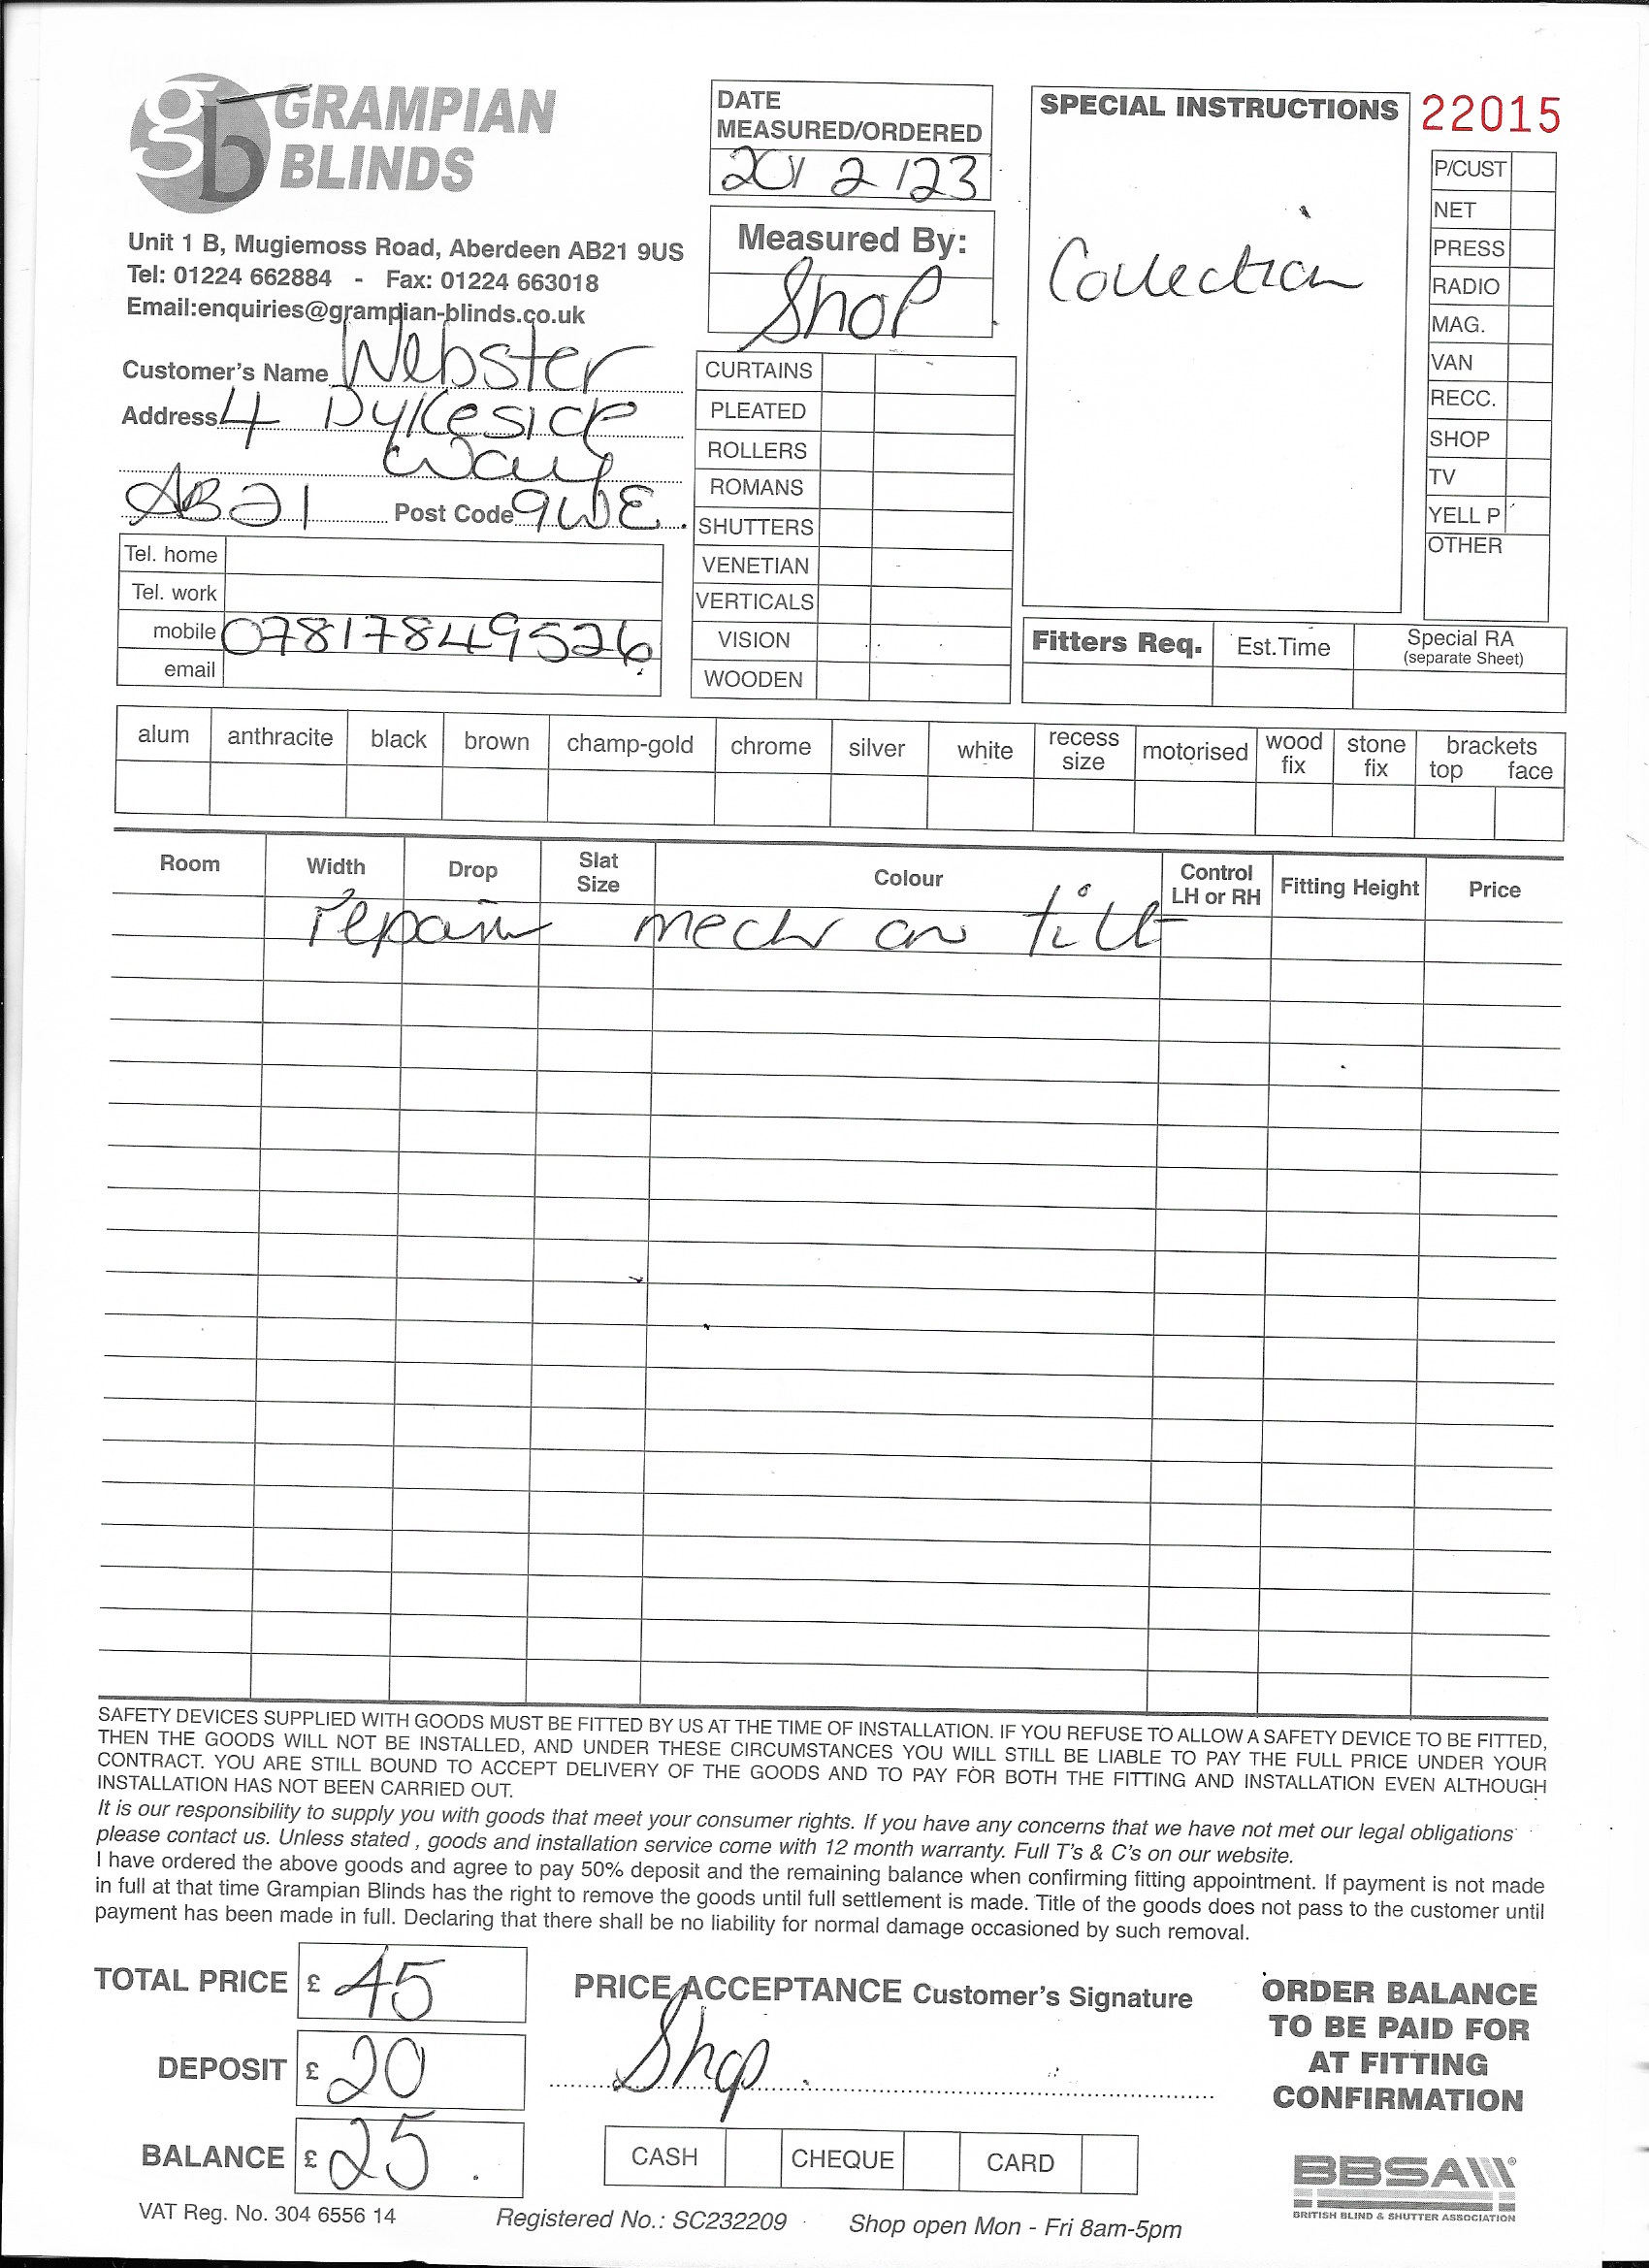 gb GRAMPIAN
BLINDS
Unit 1 B, Mugiemoss Road, Aberdeen AB21 9US
Tel: 01224 662884 - Fax: 01224 663018
Email:enquiries@grampian-blinds.co.uk
Customer's Name Webster
Address 4 Dykeside
Way
AB21 Post Code 9WE
Tel. home
Tel. work
mobile 07817849526
email
DATE
MEASURED/ORDERED
20/2/23
Measured By:
Shop
CURTAINS
PLEATED
ROLLERS
ROMANS
SHUTTERS
VENETIAN
VERTICALS
VISION
WOODEN
SPECIAL INSTRUCTIONS
Collection
22015
P/CUST
NET
PRESS
RADIO
MAG.
VAN
RECC.
SHOP
TV
YELL P
OTHER
Fitters Req. Est.Time Special RA
(separate Sheet)
alum anthracite black brown champ-gold chrome silver white recess size motorised wood fix stone fix brackets top face
Room Width Drop Slat Size Colour Control LH or RH Fitting Height Price
repair mech on tilt
SAFETY DEVICES SUPPLIED WITH GOODS MUST BE FITTED BY US AT THE TIME OF INSTALLATION. IF YOU REFUSE TO ALLOW A SAFETY DEVICE TO BE FITTED,
THEN THE GOODS WILL NOT BE INSTALLED, AND UNDER THESE CIRCUMSTANCES YOU WILL STILL BE LIABLE TO PAY THE FULL PRICE UNDER YOUR
CONTRACT. YOU ARE STILL BOUND TO ACCEPT DELIVERY OF THE GOODS AND TO PAY FOR BOTH THE FITTING AND INSTALLATION EVEN ALTHOUGH
INSTALLATION HAS NOT BEEN CARRIED OUT.
It is our responsibility to supply you with goods that meet your consumer rights. If you have any concerns that we have not met our legal obligations
please contact us. Unless stated , goods and installation service come with 12 month warranty. Full T's & C's on our website.
I have ordered the above goods and agree to pay 50% deposit and the remaining balance when confirming fitting appointment. If payment is not made
in full at that time Grampian Blinds has the right to remove the goods until full settlement is made. Title of the goods does not pass to the customer until
payment has been made in full. Declaring that there shall be no liability for normal damage occasioned by such removal.
TOTAL PRICE £ 45
DEPOSIT £ 20
BALANCE £ 25.
PRICE ACCEPTANCE Customer's Signature
Shop
CASH CHEQUE CARD
ORDER BALANCE
TO BE PAID FOR
AT FITTING
CONFIRMATION
BBSA
BRITISH BLIND & SHUTTER ASSOCIATION
VAT Reg. No. 304 6556 14 Registered No.: SC232209 Shop open Mon - Fri 8am-5pm